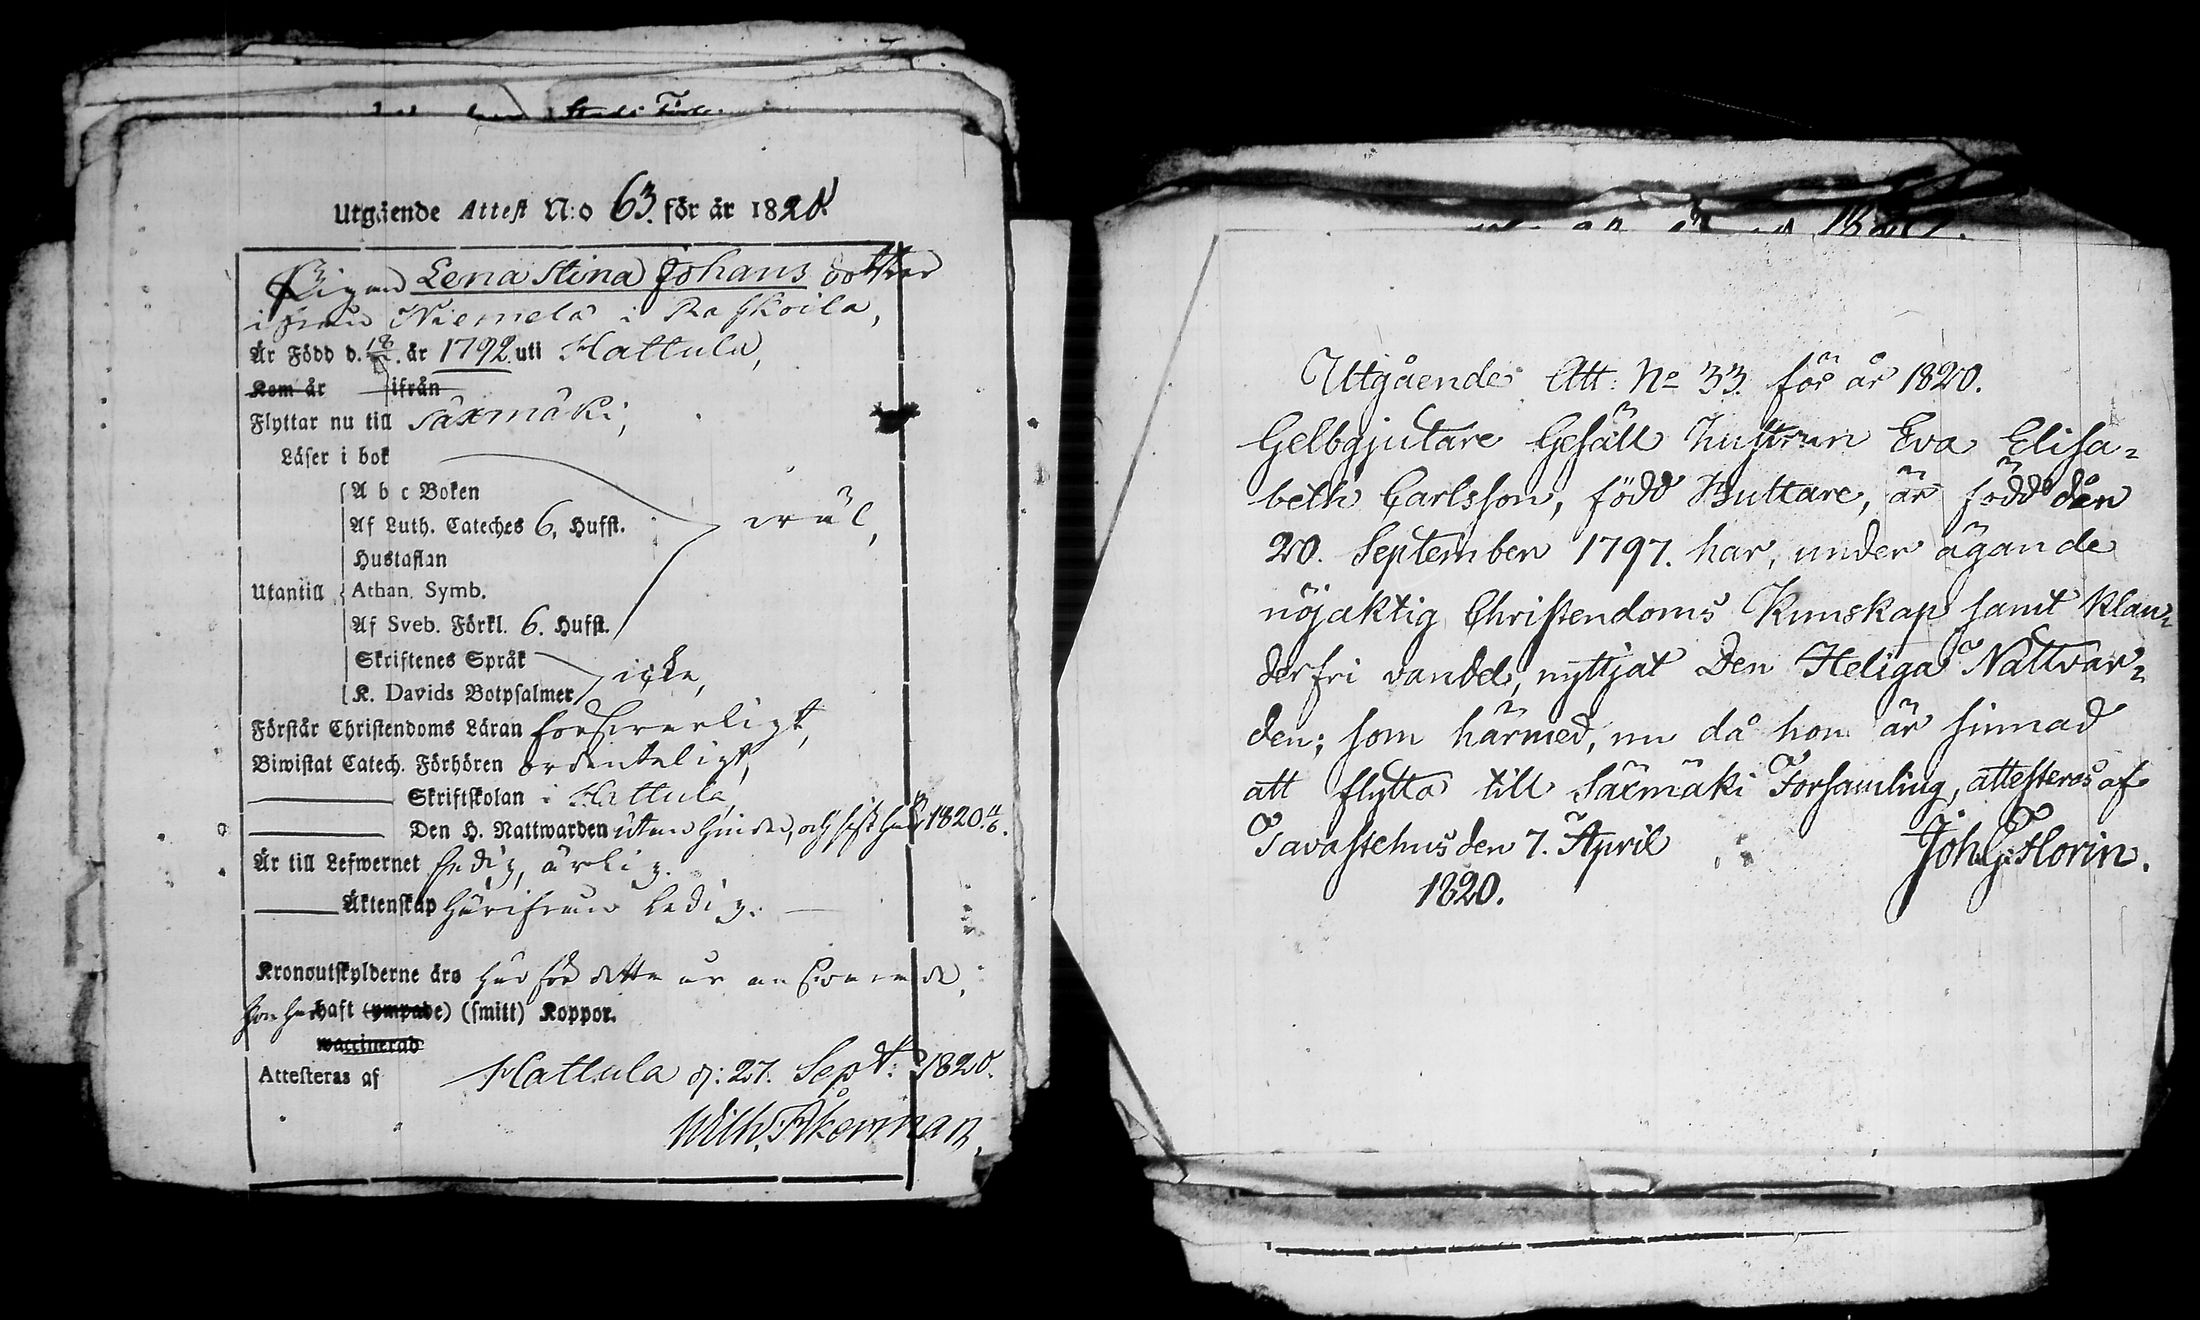 Utgående Attest N:o 63. för år 1820.
Pigan Lena Stina Johans dotter
ifrån Niemelä i Rahkoila,
Är Född d. 18 år 1792 uti Hattula,
Kom år ifrån
Flyttar nu till Säxmäki,
Läser i bok
A b c Boken
Af Luth. Cateches 6. Hufst. väl,
Hustaflan
Utantill Athan. Symb.
Af Sveb. Förkl. 6. Hufst.
Skriftenes Språk
K. Davids Botpsalmer icke,
Förstår Christendoms Läran försvarligt,
Biwistat Catech. Förhören ordenteligt,
Skriftskolan i Hattula,
Den H. Nattwarden utan hinder, och sist här 1820
Är till Lefwernet frdig, ärlig.
Äktenskap härifrån ledig.
Kronoutskylderne äro här för detta år
hon har haft (ympade) (smitt) Koppor.
waccinerad
Attesteras af Hattula d: 27. Sept: 1820.
Wilh. Åkerman,
Utgående Att: No 33. för år 1820.
Gelbgjutare Gesäll hustrun Eva Elisa=
beth Carlsson, född Buttare, är född den
20. September 1797. har, under ägande
nöjaktig Christendoms Kunskap samt klan=
derfri vandel, nyttjat Den Heliga Nattvar=
den; som härmed, nu då hon är sinnad
att flytta till Säxmäki Församling, attesteras af
Tavastehus den 7. April Joh. G: Florin.
1820.